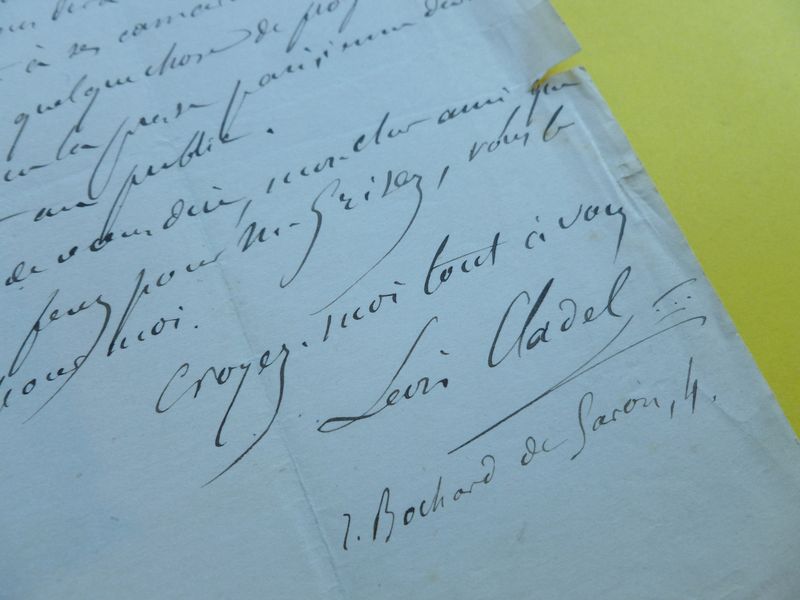 à ses
quelque chose de
la presse parisienne
au public.
de vous dire, mon cher ami que
ferez pour M. Grisez, vous le
moi.
Croyez-moi tout à vous
Léon Cladel
r. Bochard de Saron, 4.